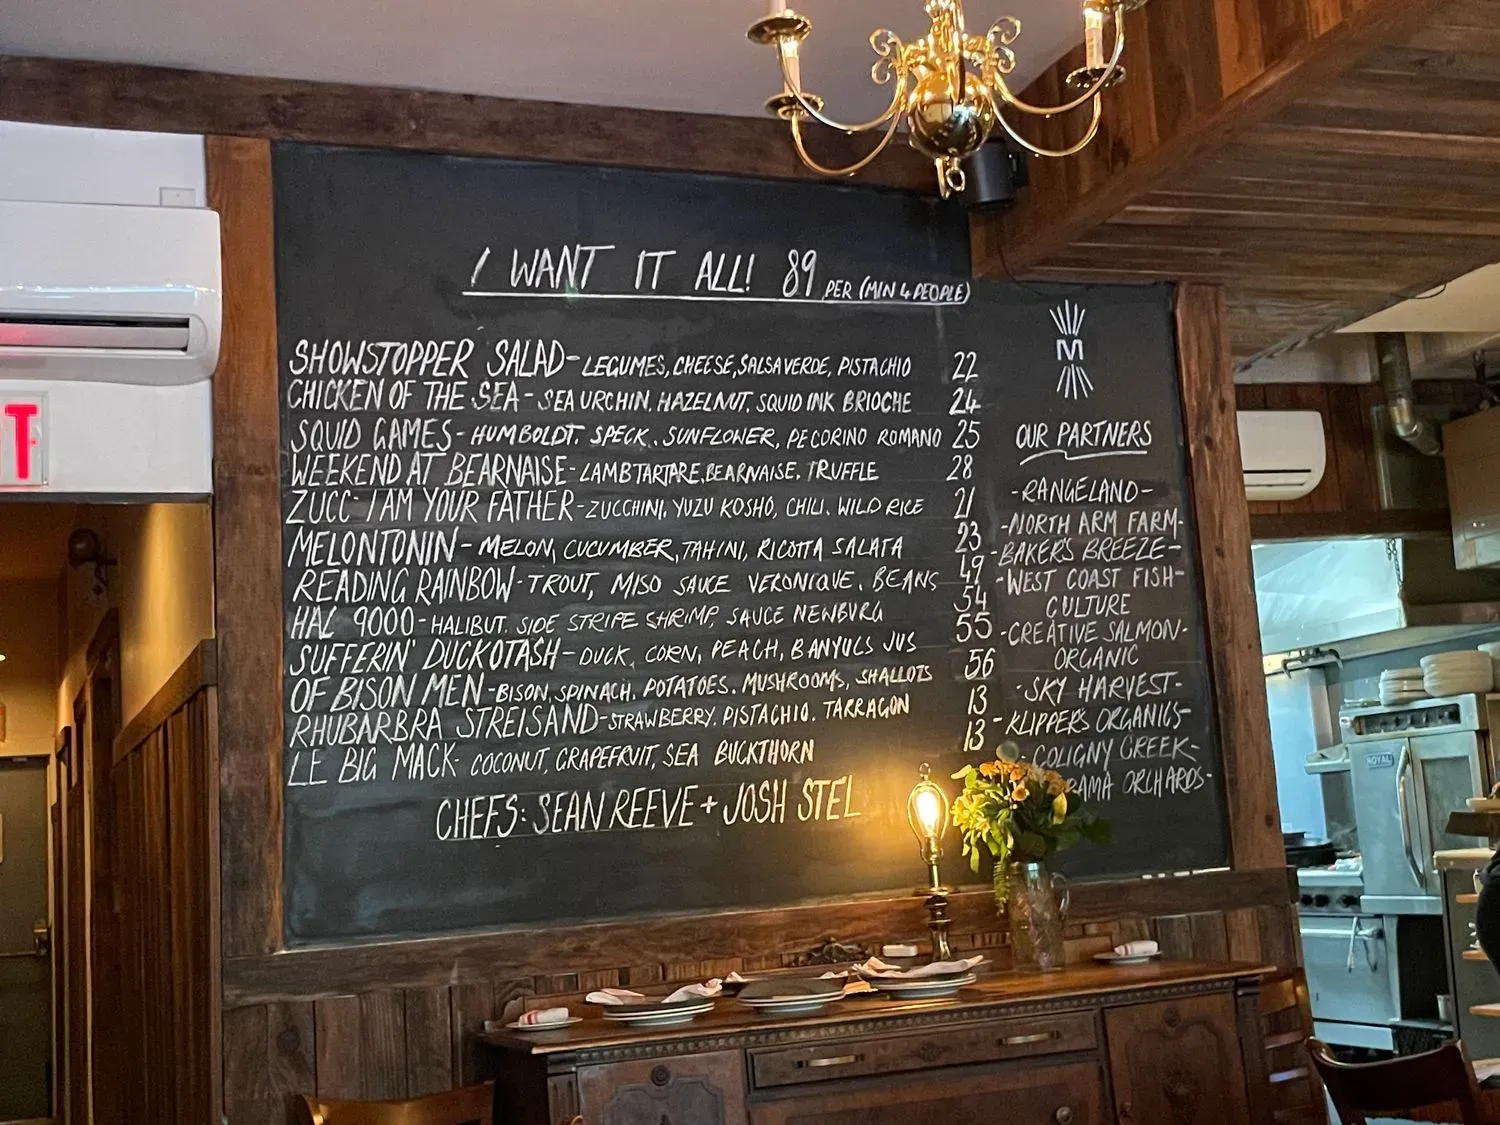 I WANT IT ALL! 89 PER (MIN 4 PEOPLE)
SHOWSTOPPER SALAD - LEGUMES, CHEESE, SALSA VERDE, PISTACHIO 22
CHICKEN OF THE SEA - SEA URCHIN, HAZELNUT, SQUID INK BRIOCHE 24
SQUID GAMES - HUMBOLDT, SPECK, SUNFLOWER, PECORINO ROMANO 25
WEEKEND AT BEARNAISE - LAMB TARTARE, BEARNAISE, TRUFFLE 28
ZUCC- I AM YOUR FATHER - ZUCCHINI, YUZU KOSHO, CHILI, WILD RICE 21
MELONTONIN - MELON, CUCUMBER, TAHINI, RICOTTA SALATA 23
READING RAINBOW - TROUT, MISO SAUCE VERONIQUE, BEANS 49
HAL 9000 - HALIBUT, SIDE STRIPE SHRIMP, SAUCE NEWBURG 54
SUFFERIN' DUCKOTASH - DUCK, CORN, PEACH, BANYULS JUS 55
OF BISON MEN - BISON, SPINACH, POTATOES, MUSHROOMS, SHALLOTS 56
RHUBARBRA STREISAND - STRAWBERRY, PISTACHIO, TARRAGON 13
LE BIG MACK - COCONUT, GRAPEFRUIT, SEA BUCKTHORN 13
CHEFS: SEAN REEVE + JOSH STEL
M
OUR PARTNERS
-RANGELAND-
-NORTH ARM FARM-
-BAKER'S BREEZE-
-WEST COAST FISH-
CULTURE
-CREATIVE SALMON-
ORGANIC
-SKY HARVEST-
-KLIPPER'S ORGANICS-
-COLIGNY CREEK-
ORCHARDS-
ROYAL